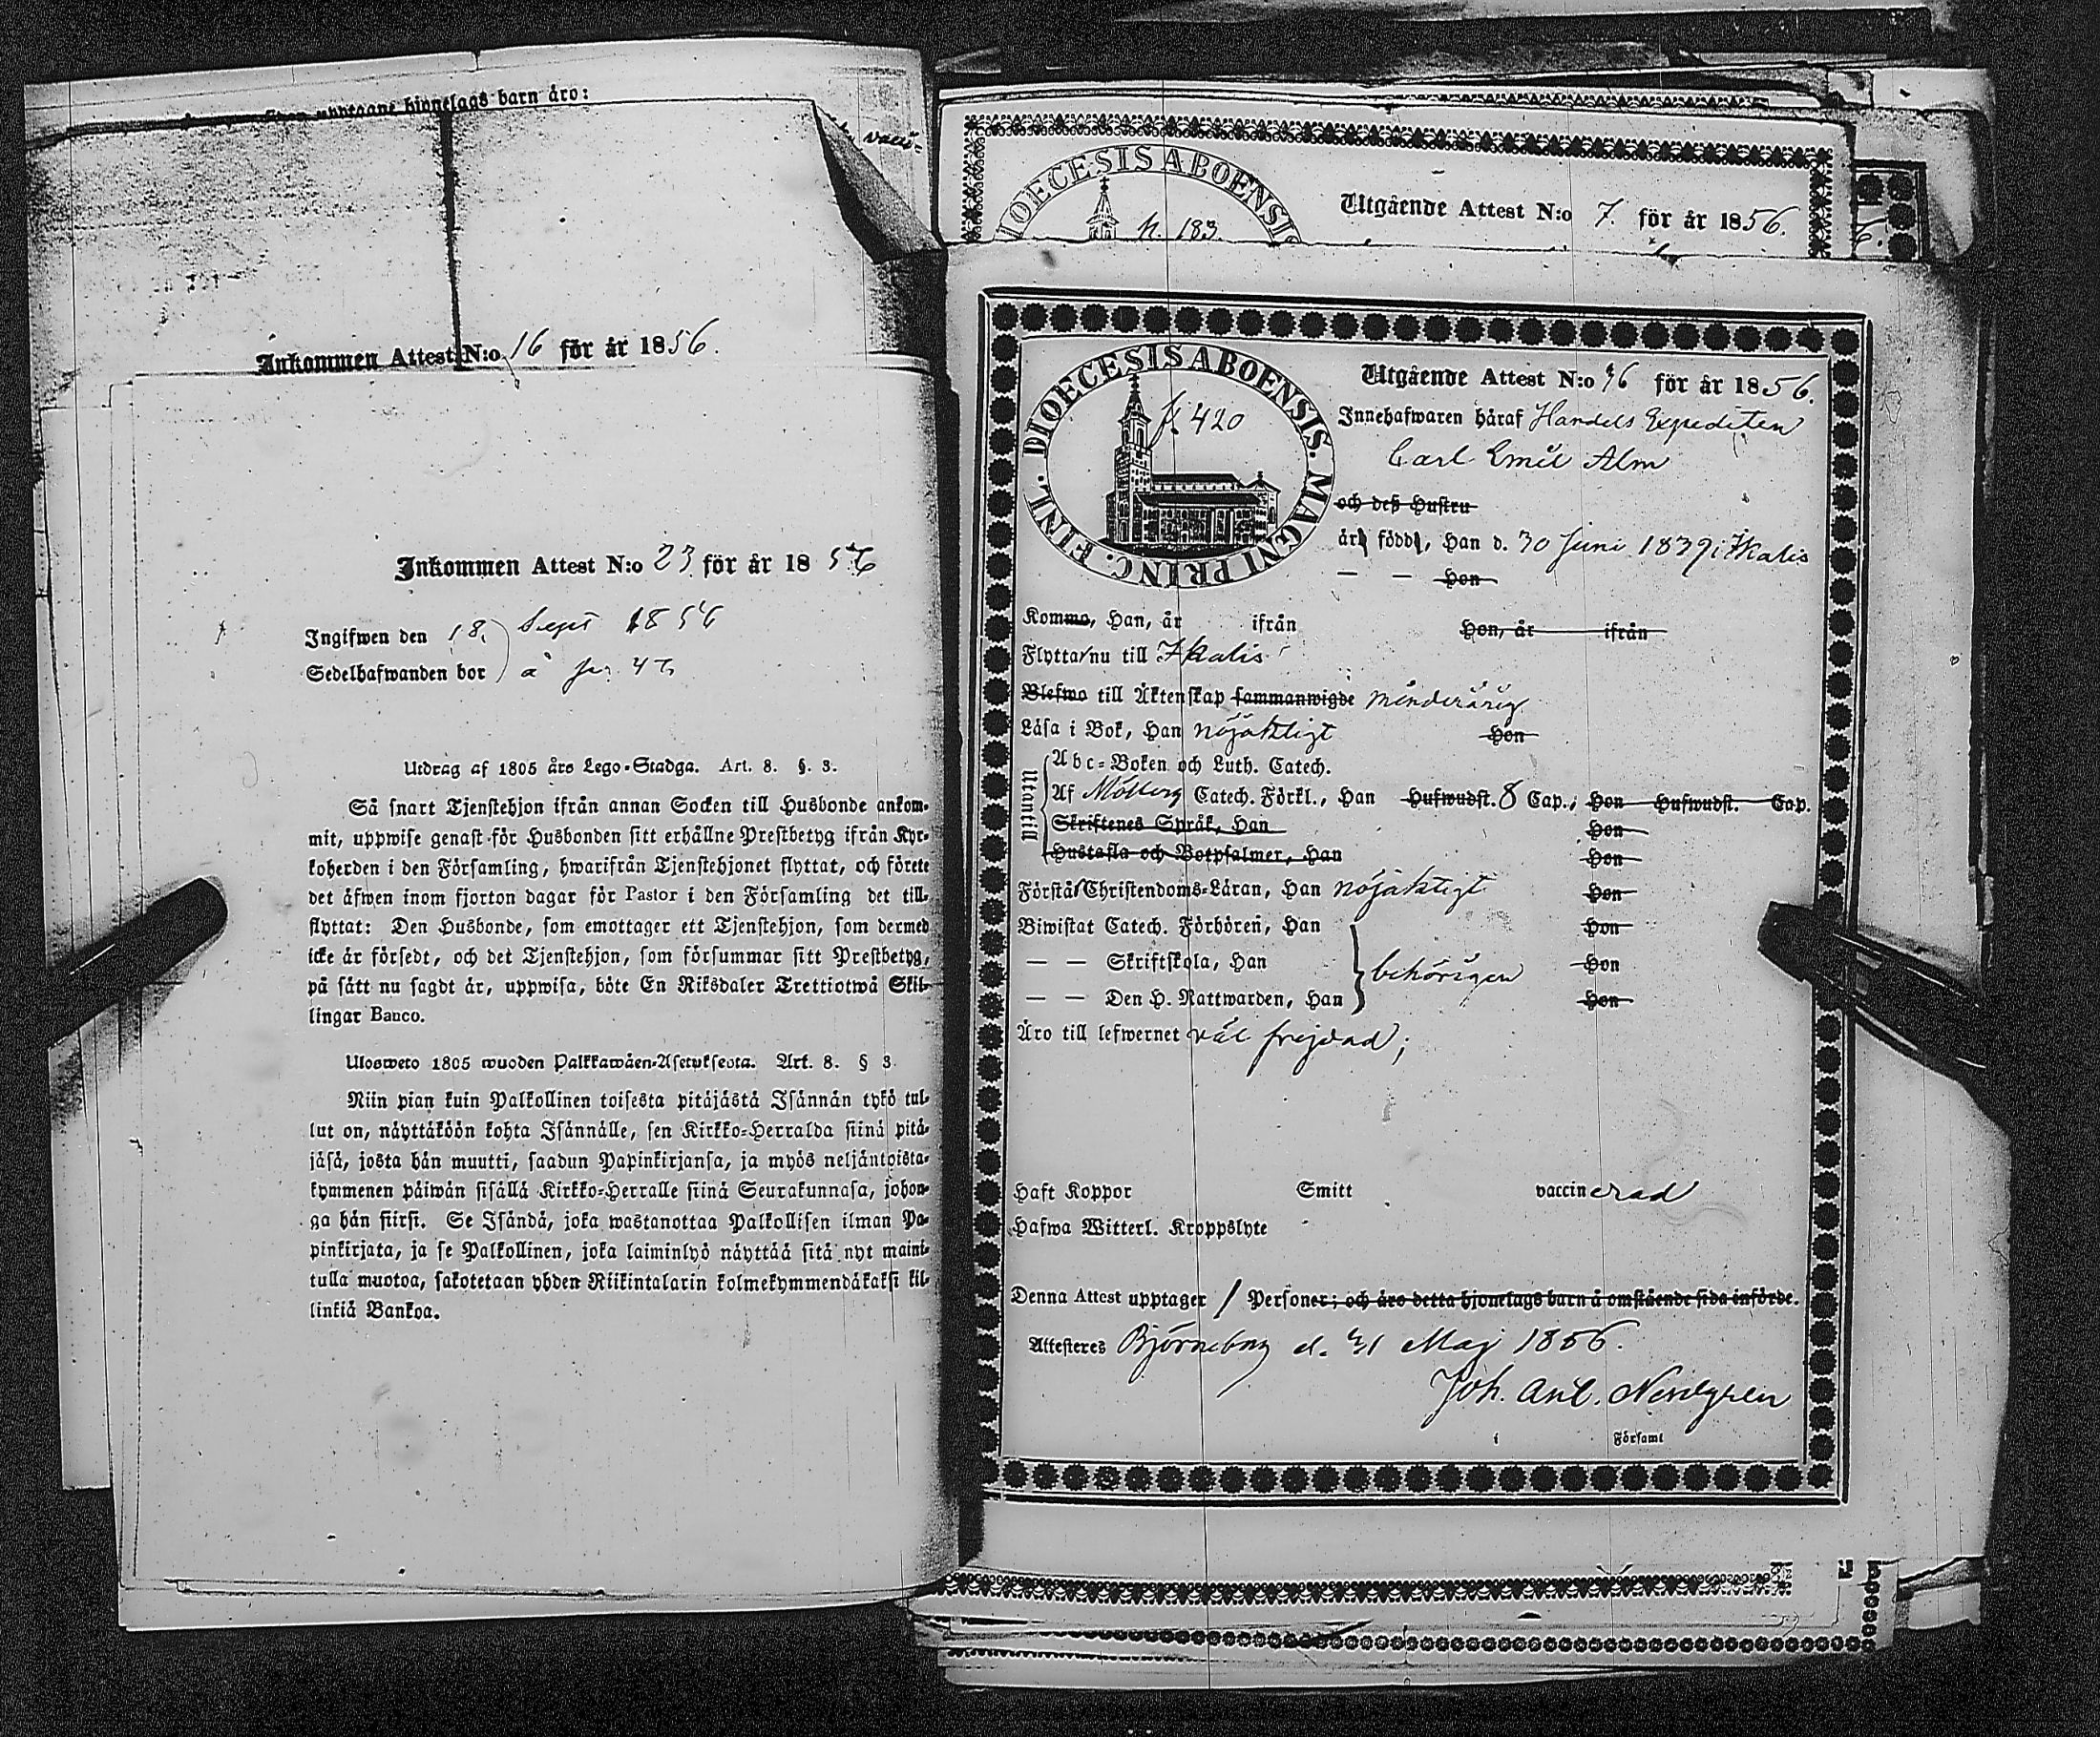 barn äro:
Inkommen Attest N:o 16 för år 1856.
Inkommen Attest N:o 23 för år 1856
Ingifwen den 18. Sept 1856
Sedelhafwanden bor å
Utdrag af 1805 års Lego-Stadga. Art. 8. §. 3.
Så snart Tjenstehjon ifrån annan Socken till Husbonde ankom-
mit, uppwise genast för Husbonden sitt erhållne Prestbetyg ifrån Kyr-
koherden i den Församling, hwarifrån Tjenstehjonet flyttat, och förete
det äfwen inom fjorton dagar för Pastor i den Församling det till-
flyttat: Den Husbonde, som emottager ett Tjenstehjon, som dermed
icke är försedt, och det Tjenstehjon, som försummar sitt Prestbetyg,
på sätt nu sagdt är, uppwisa, böte En Riksdaler Trettiotwå Skil-
lingar Banco.
Ulosweto 1805 wuoden Palkkawäen-Asetuksesta. Art. 8. § 3
Niin pian kuin Palkollinen toisesta pitäjästä Isännän tykö tul-
lut on, näyttäköön kohta Isännälle, sen Kirkko-Herralda siinä pitä-
jäsä, josta hän muutti, saadun Papinkirjansa, ja myös neljäntoista-
kymmenen päiwän sisällä Kirkko-Herralle siinä Seurakunnasa, johon-
ga hän siirsi. Se Isändä, joka wastanottaa Palkollisen ilman Pa-
pinkirjata, ja se Palkollinen, joka laiminlyö näyttää sitä nyt maini-
tulla muotoa, sakotetaan yhden Riikintalarin kolmekymmendäkaksi kil-
linkiä Bankoa.
DIOECESIS ABOENSIS
N. 183
Utgående Attest N:o 7. för år 1856.
DIOECESIS ABOENSIS. MAGNI PRINC. FINL.
f. 420
Utgående Attest N:o 46 för år 1856.
Innehafwaren häraf Handels Expediten
Carl Emil Alm
och deß Hustru
är född, Han d. 30 Juni 1839 i Ikalis
— — Hon
Komma, Han, år ifrån Hon, år ifrån
Flytta nu till Ikalis
Blefwo till Äktenskap sammanwigde minderårig
Läsa i Bok, Han nöjaktigt Hon
Utantill
Abc-Boken och Luth. Catech.
Af Möllers Catech. Förkl., Han Hufwudst. 8 Cap.; Hon Hufwudst. Cap.
Skriftenes Språk, Han Hon
Hustafla och Botpsalmer, Han Hon
Förstå Christendoms-Läran, Han nöjaktigt Hon
Biwistat Catech. Förhören, Han Hon
— — Skriftskola, Han behörigen Hon
— — Den H. Nattwarden, Han Hon
Äro till lefwernet väl frejdad;
Haft Koppor Smitt vaccinerad
Hafwa Witterl. Kroppslyte
Denna Attest upptager 1 Personer; och äro detta hjonelags barn å omstående sida införde.
Attesteras Björneborg d. 31 Maj 1856.
Joh. Ant. Nordgren
i Församl